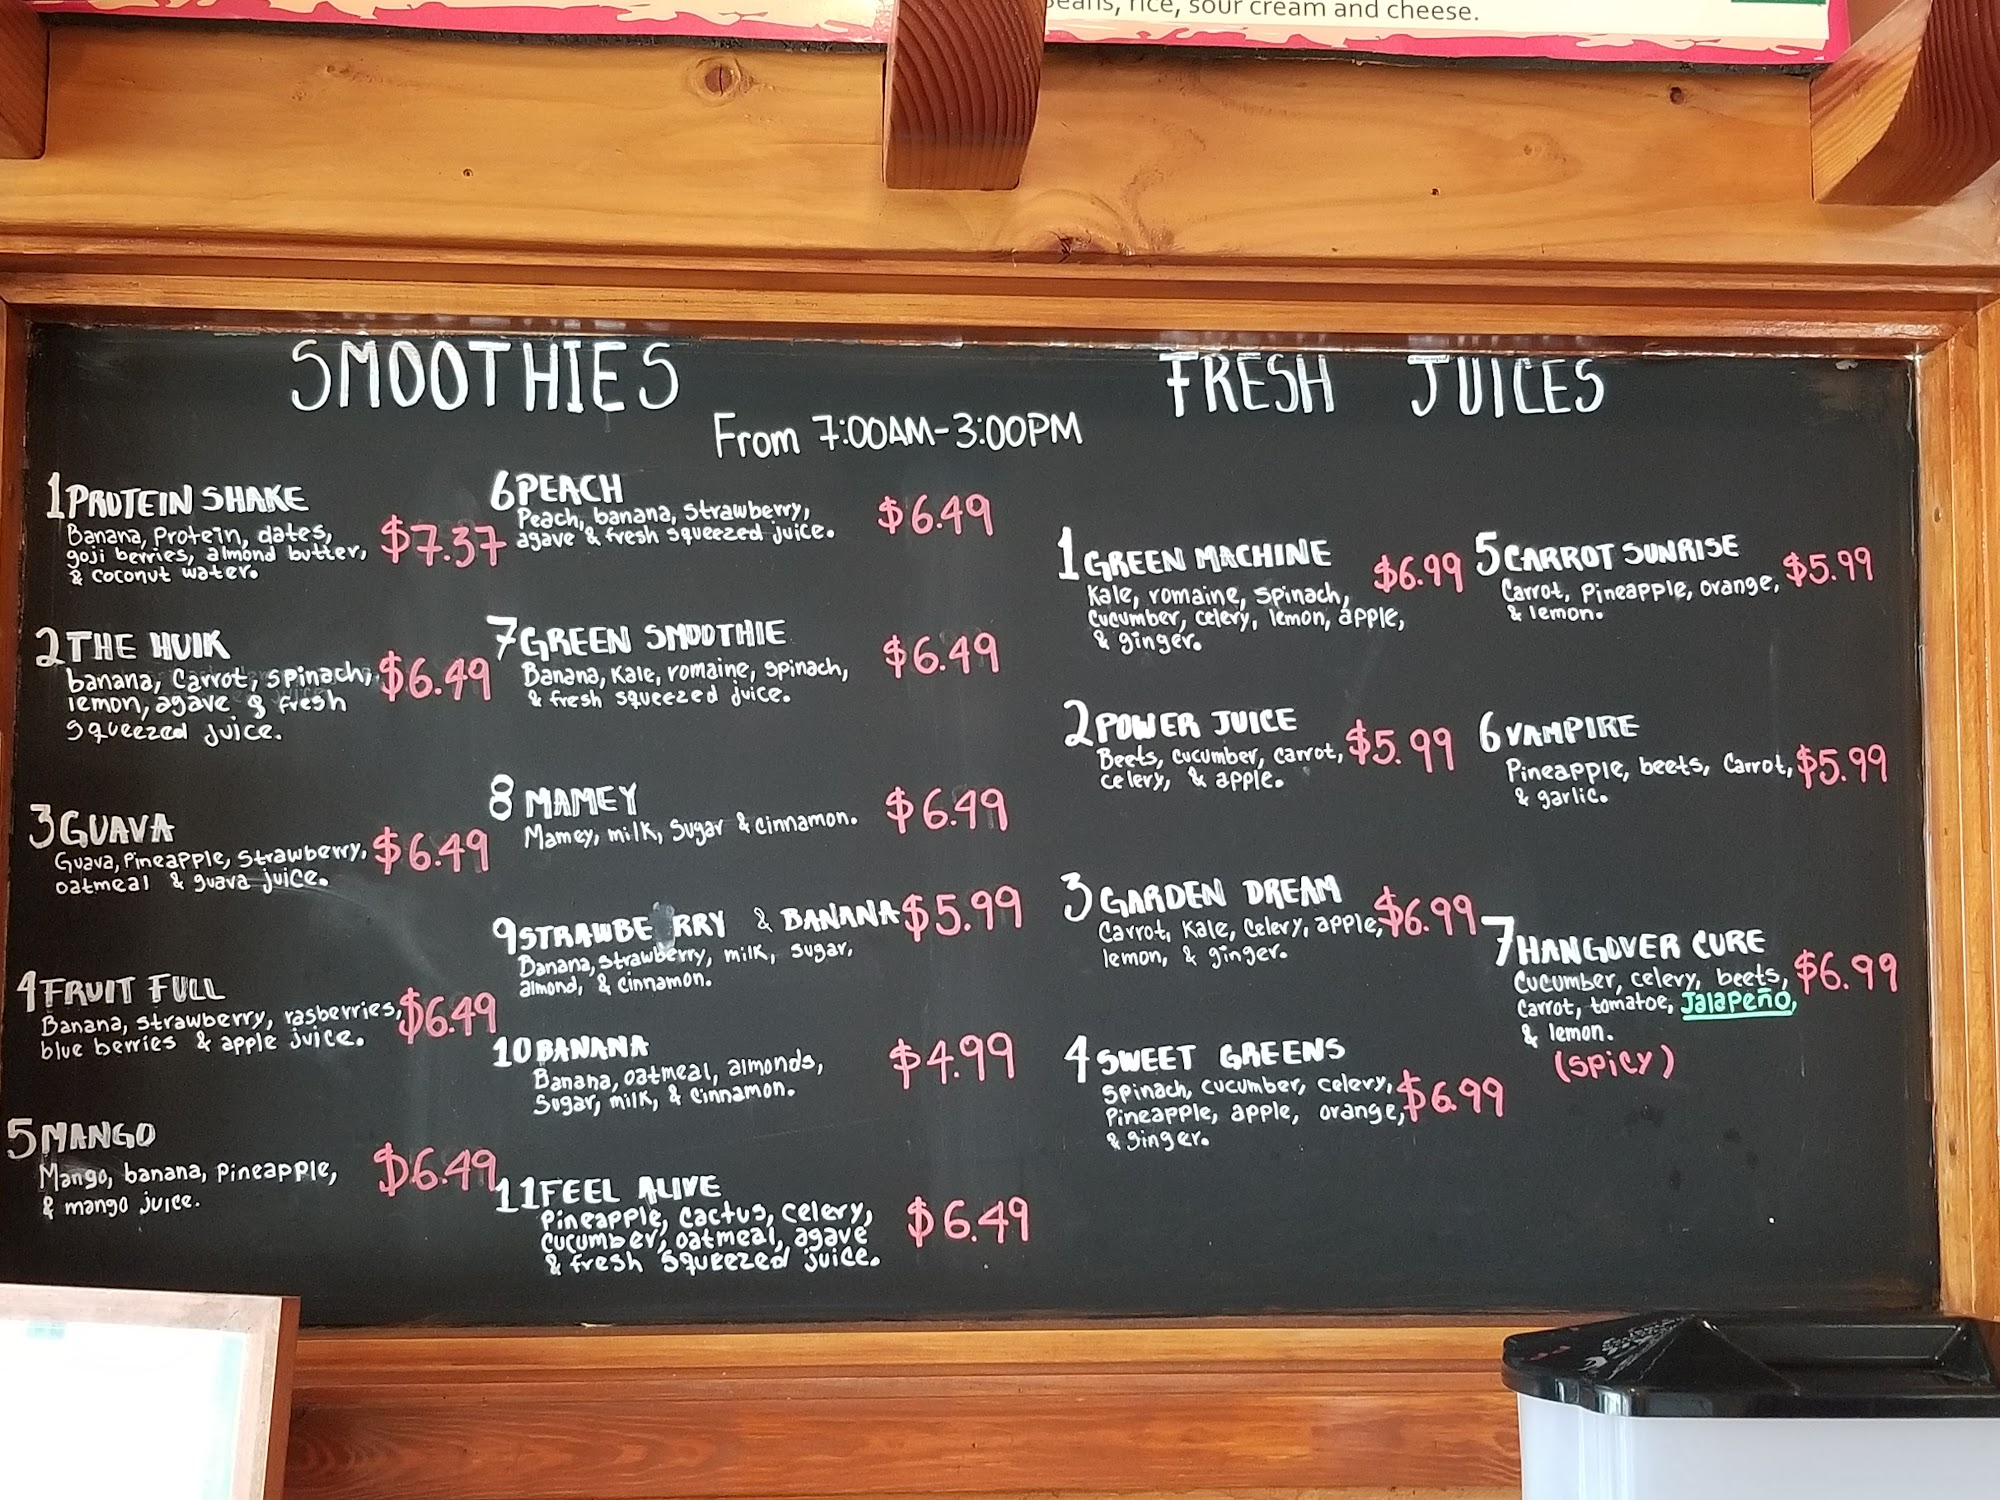 beans, rice, sour cream and cheese.
SMOOTHIES
FRESH JUICES
From 7:00AM-3:00PM
1 PROTEIN SHAKE
Banana, Protein, dates,
goji berries, almond butter,
& coconut water.
$7.37
2 THE HULK
banana, Carrot, spinach,
lemon, agave & fresh
squeezed juice.
$6.49
3 GUAVA
Guava, Pineapple, strawberry,
oatmeal & guava juice.
$6.49
4 FRUIT FULL
Banana, strawberry, rasberries,
blue berries & apple juice.
$6.49
5 MANGO
Mango, banana, Pineapple,
& mango juice.
$6.49
6 PEACH
Peach, banana, strawberry,
agave & fresh squeezed juice.
$6.49
7 GREEN SMOOTHIE
Banana, Kale, romaine, spinach,
& fresh squeezed juice.
$6.49
8 MAMEY
Mamey, milk, Sugar & cinnamon.
$6.49
9 STRAWBERRY & BANANA
Banana, strawberry, milk, sugar,
almond, & cinnamon.
$5.99
10 BANANA
Banana, oatmeal, almonds,
Sugar, milk, & cinnamon.
$4.99
11 FEEL ALIVE
Pineapple, cactus, celery,
cucumber, oatmeal, agave
& fresh squeezed juice.
$6.49
1 GREEN MACHINE
Kale, romaine, spinach,
cucumber, celery, lemon, apple,
& ginger.
$6.99
2 POWER JUICE
Beets, cucumber, carrot,
celery, & apple.
$5.99
3 GARDEN DREAM
Carrot, Kale, Celery, apple,
lemon, & ginger.
$6.99
4 SWEET GREENS
Spinach, cucumber, celery,
Pineapple, apple, orange,
& ginger.
$6.99
5 CARROT SUNRISE
Carrot, Pineapple, orange,
& lemon.
$5.99
6 VAMPIRE
Pineapple, beets, Carrot,
& garlic.
$5.99
7 HANGOVER CURE
Cucumber, celery, beets,
Carrot, tomatoe, Jalapeño,
& lemon.
(SPICY)
$6.99